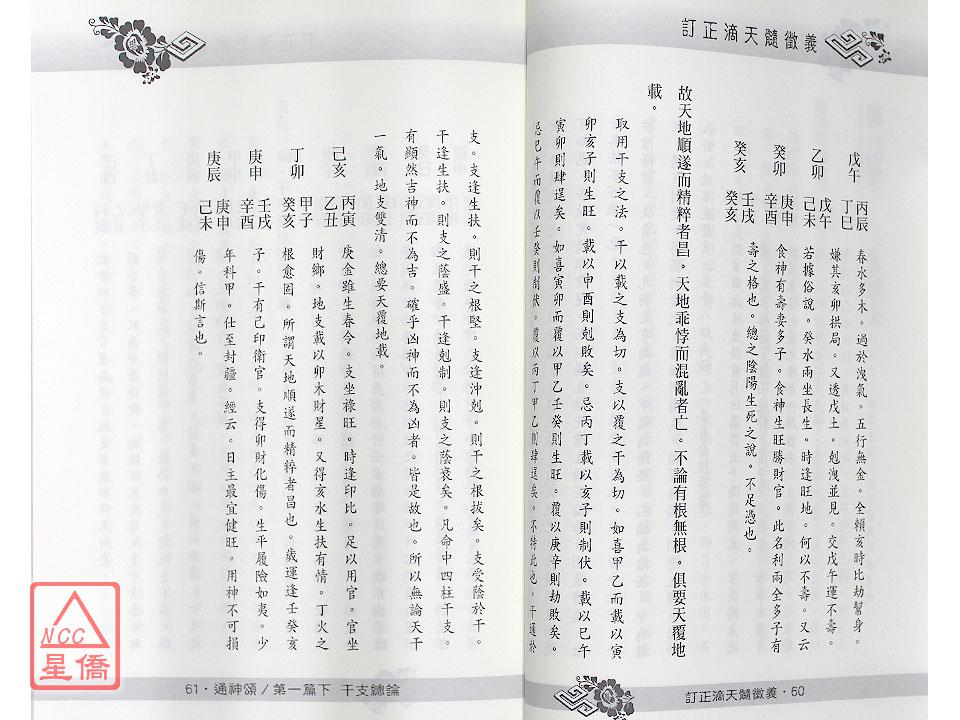 訂正滴天髓徵義
戊午 丙辰 春水多木。過於洩氣。五行無金。全賴亥時比劫幫身。
丁巳 嫌其亥卯拱局。又透戊土。剋洩並見。交戊午運不壽。
乙卯 戊午 若據俗說。癸水兩坐長生。時逢旺地。何以不壽。又云
己未 食神有壽妻多子。食神生旺勝財官。此名利兩全多子有
癸卯 庚申 壽之格也。總之陰陽生死之說。不足憑也。
辛酉
癸亥 壬戌
癸亥
故天地順遂而精粹者昌。天地乖悖而混亂者亡。不論有根無根。俱要天覆地
載。
取用干支之法。干以載之支為切。支以覆之干為切。如喜甲乙而載以寅
卯亥子則生旺。載以申酉則剋敗矣。忌丙丁載以亥子則制伏。載以巳午
寅卯則肆逞矣。如喜寅卯而覆以甲乙壬癸則生旺。覆以庚辛則劫敗矣。
忌巳午而覆以壬癸則制伏。覆以丙丁甲乙則肆逞矣。不特此也。干通於
訂正滴天髓徵義・60
支。支逢生扶。則干之根堅。支逢沖剋。則干之根拔矣。支受蔭於干。
干逢生扶。則支之蔭盛。干逢剋制。則支之蔭衰矣。凡命中四柱干支。
有顯然吉神而不為吉。確乎凶神而不為凶者。皆是故也。所以無論天干
一氣。地支雙清。總要天覆地載。
己亥 丙寅 庚金雖生春令。支坐祿旺。時逢印比。足以用官。官坐
乙丑 財鄉。地支載以卯木財星。又得亥水生扶有情。丁火之
丁卯 甲子 根愈固。所謂天地順遂而精粹者昌也。歲運逢壬癸亥
癸亥 子。干有己印衛官。支得卯財化傷。生平履險如夷。少
庚申 壬戌 年科甲。仕至封疆。經云。日主最宜健旺。用神不可損
辛酉 傷。信斯言也。
庚辰 庚申
己未
61・通神頌/第一篇下 干支總論
NCC
星僑